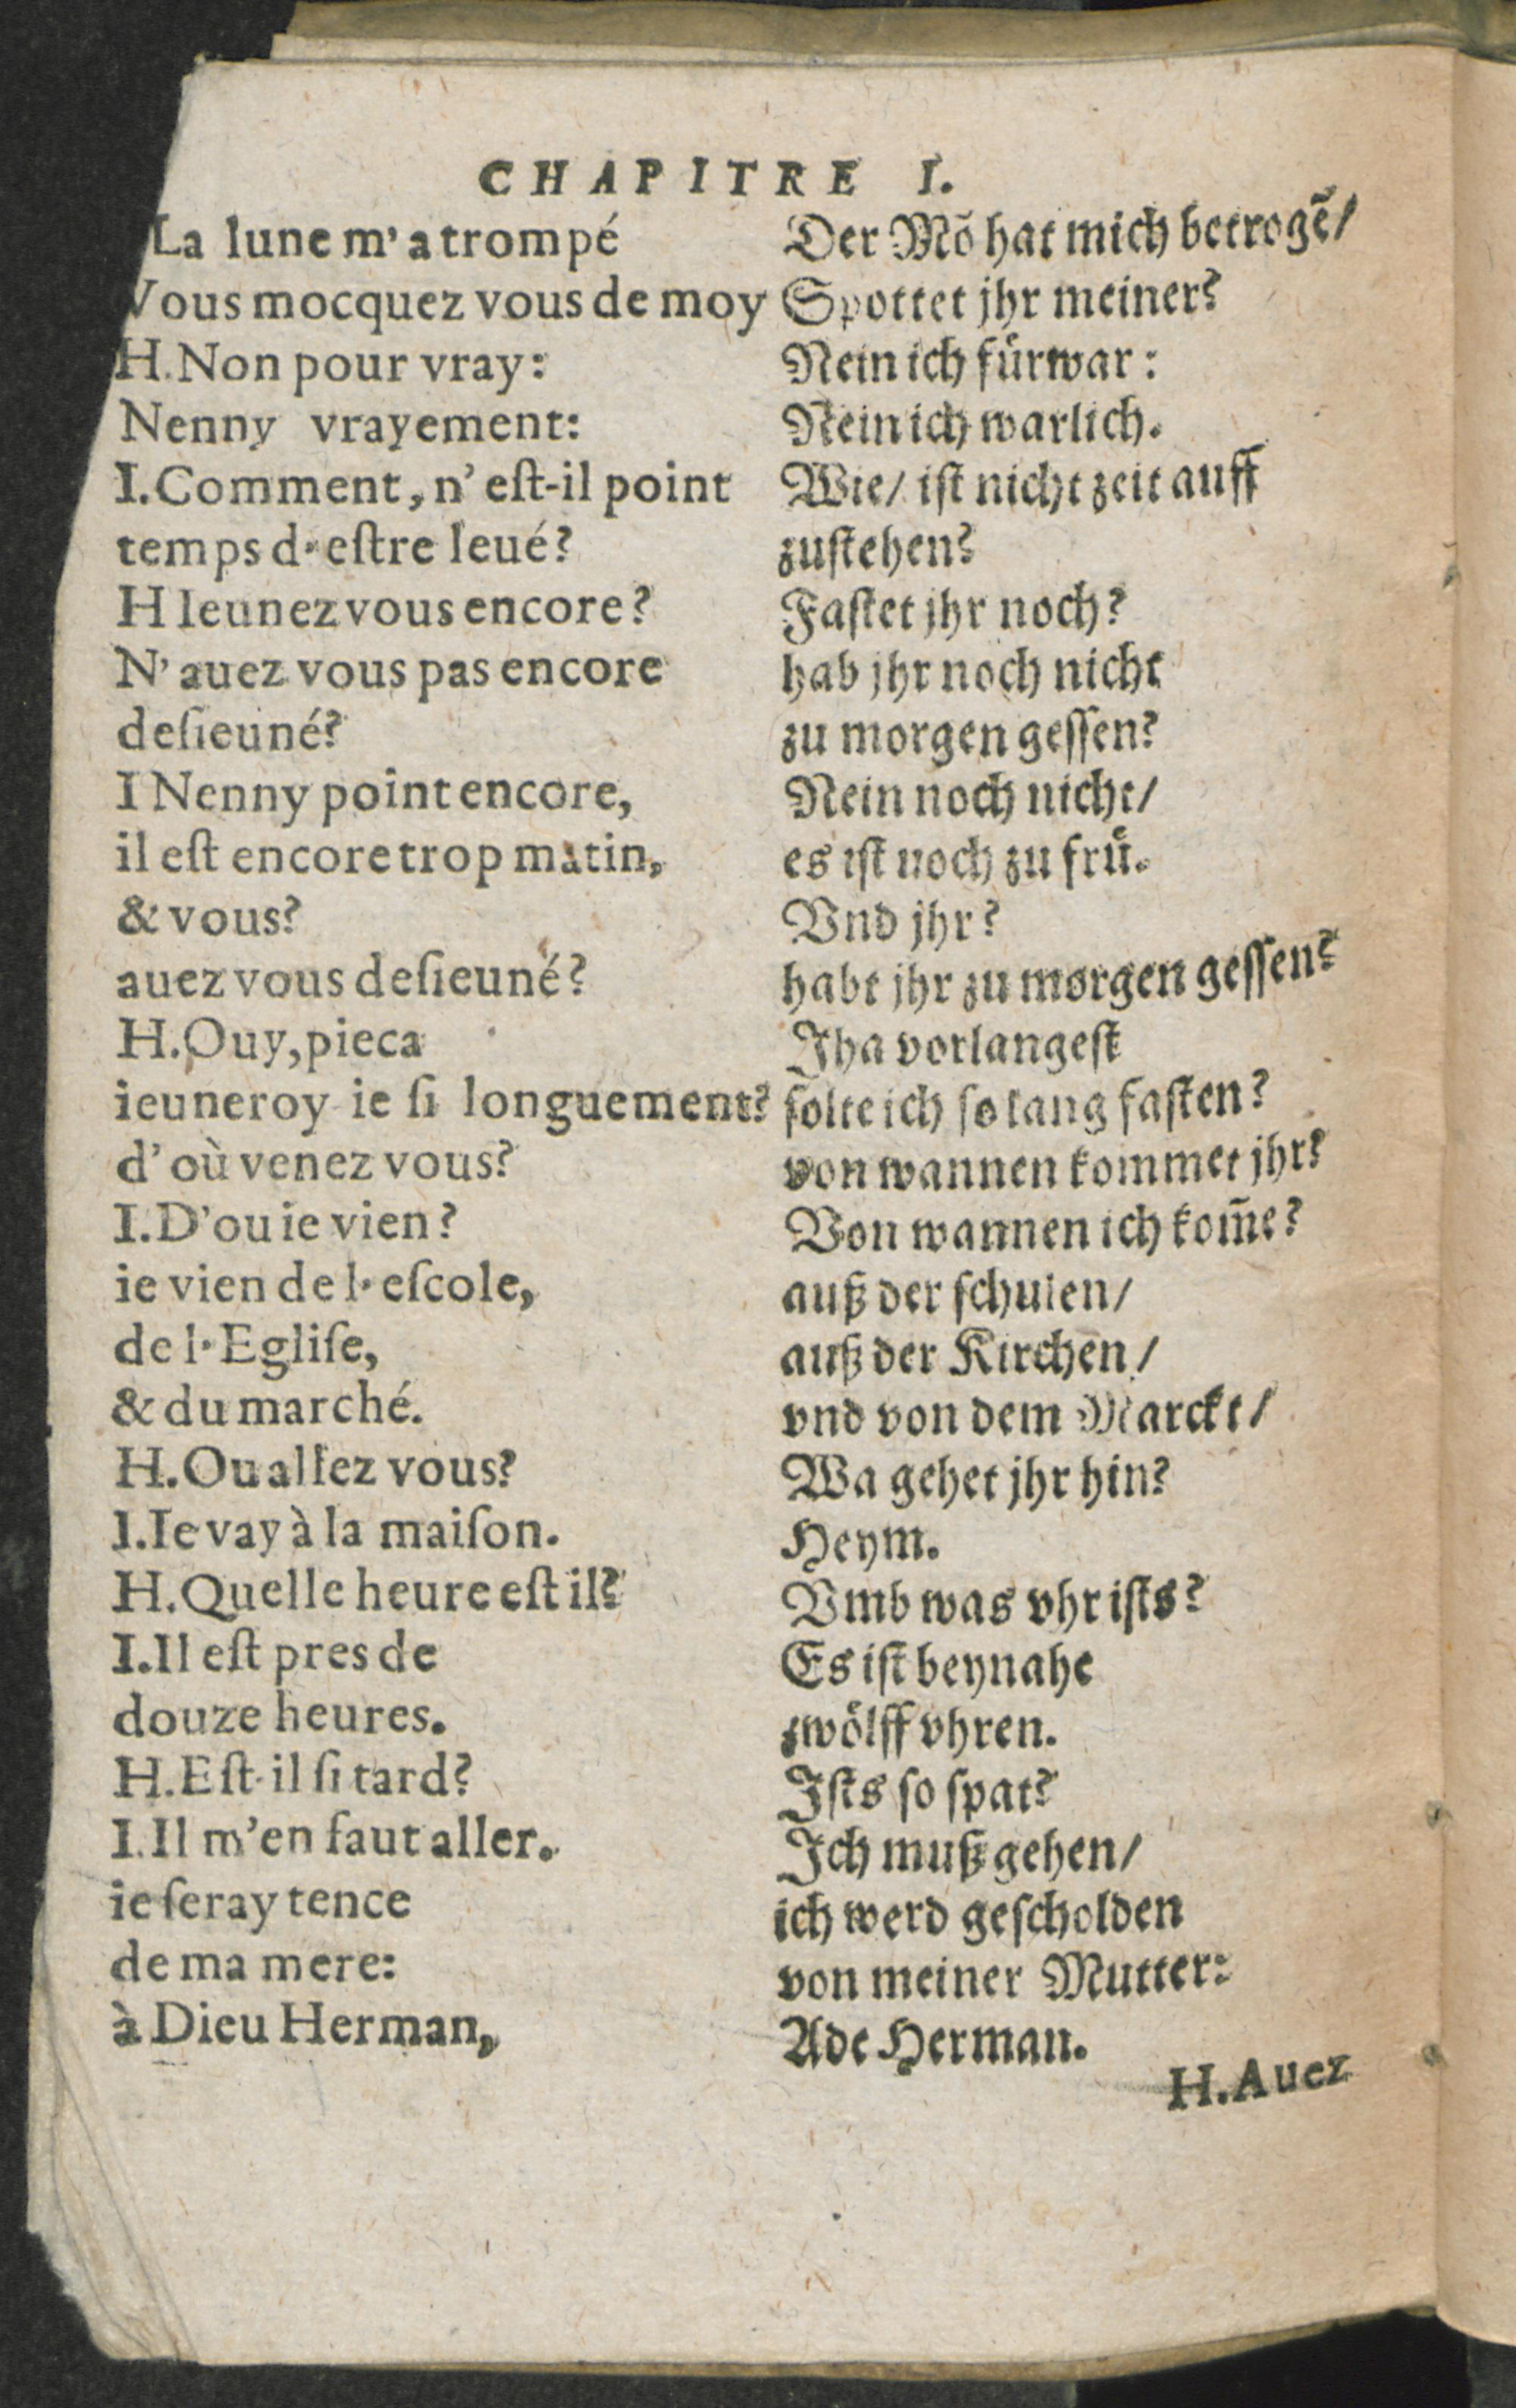 CHAPITRE I.
La lune m'a trompé
Vous mocquez vous de moy
H. Non pour vray:
Nenny vrayement:
I. Comment, n'eſt-il point
temps d'eſtre leué?
H Ieunez vous encore?
N'auez vous pas encore
deſieuné?
I Nenny point encore,
il eſt encore trop matin,
& vous?
auez vous deſieuné?
H. Ouy, pieca
ieuneroy ie ſi longuement?
d'où venez vous?
I. D'ou ie vien?
ie vien de l'eſcole,
de l'Egliſe,
& du marché.
H. Ou allez vous?
I. Ie vay à la maiſon.
H. Quelle heure eſt il?
I. Il eſt pres de
douze heures.
H. Eſt-il ſi tard?
I. Il m'en faut aller.
ie ſeray tence
de ma mere:
à Dieu Herman,
Der Mõ hat mich betrogẽ/
Spottet jhr meiner?
Nein ich fürwar:
Nein ich warlich.
Wie/ iſt nicht zeit auff
zuſtehen?
Faſtet jhr noch?
hab jhr noch nicht
zu morgen geſſen?
Nein noch nicht/
es iſt noch zu frü.
Vnd jhr?
habt jhr zu morgen geſſen?
Jha vorlangeſt
ſolte ich ſo lang faſten?
von wannen kommet jhr?
Von wannen ich kom̃e?
auß der ſchulen/
auß der Kirchen/
vnd von dem Marckt/
Wa gehet jhr hin?
Heym.
Vmb was vhr iſts?
Es iſt beynahe
zwölff vhren.
Iſts ſo ſpat?
Ich muß gehen/
ich werd geſcholden
von meiner Mutter:
Ade Herman.
H. Auez